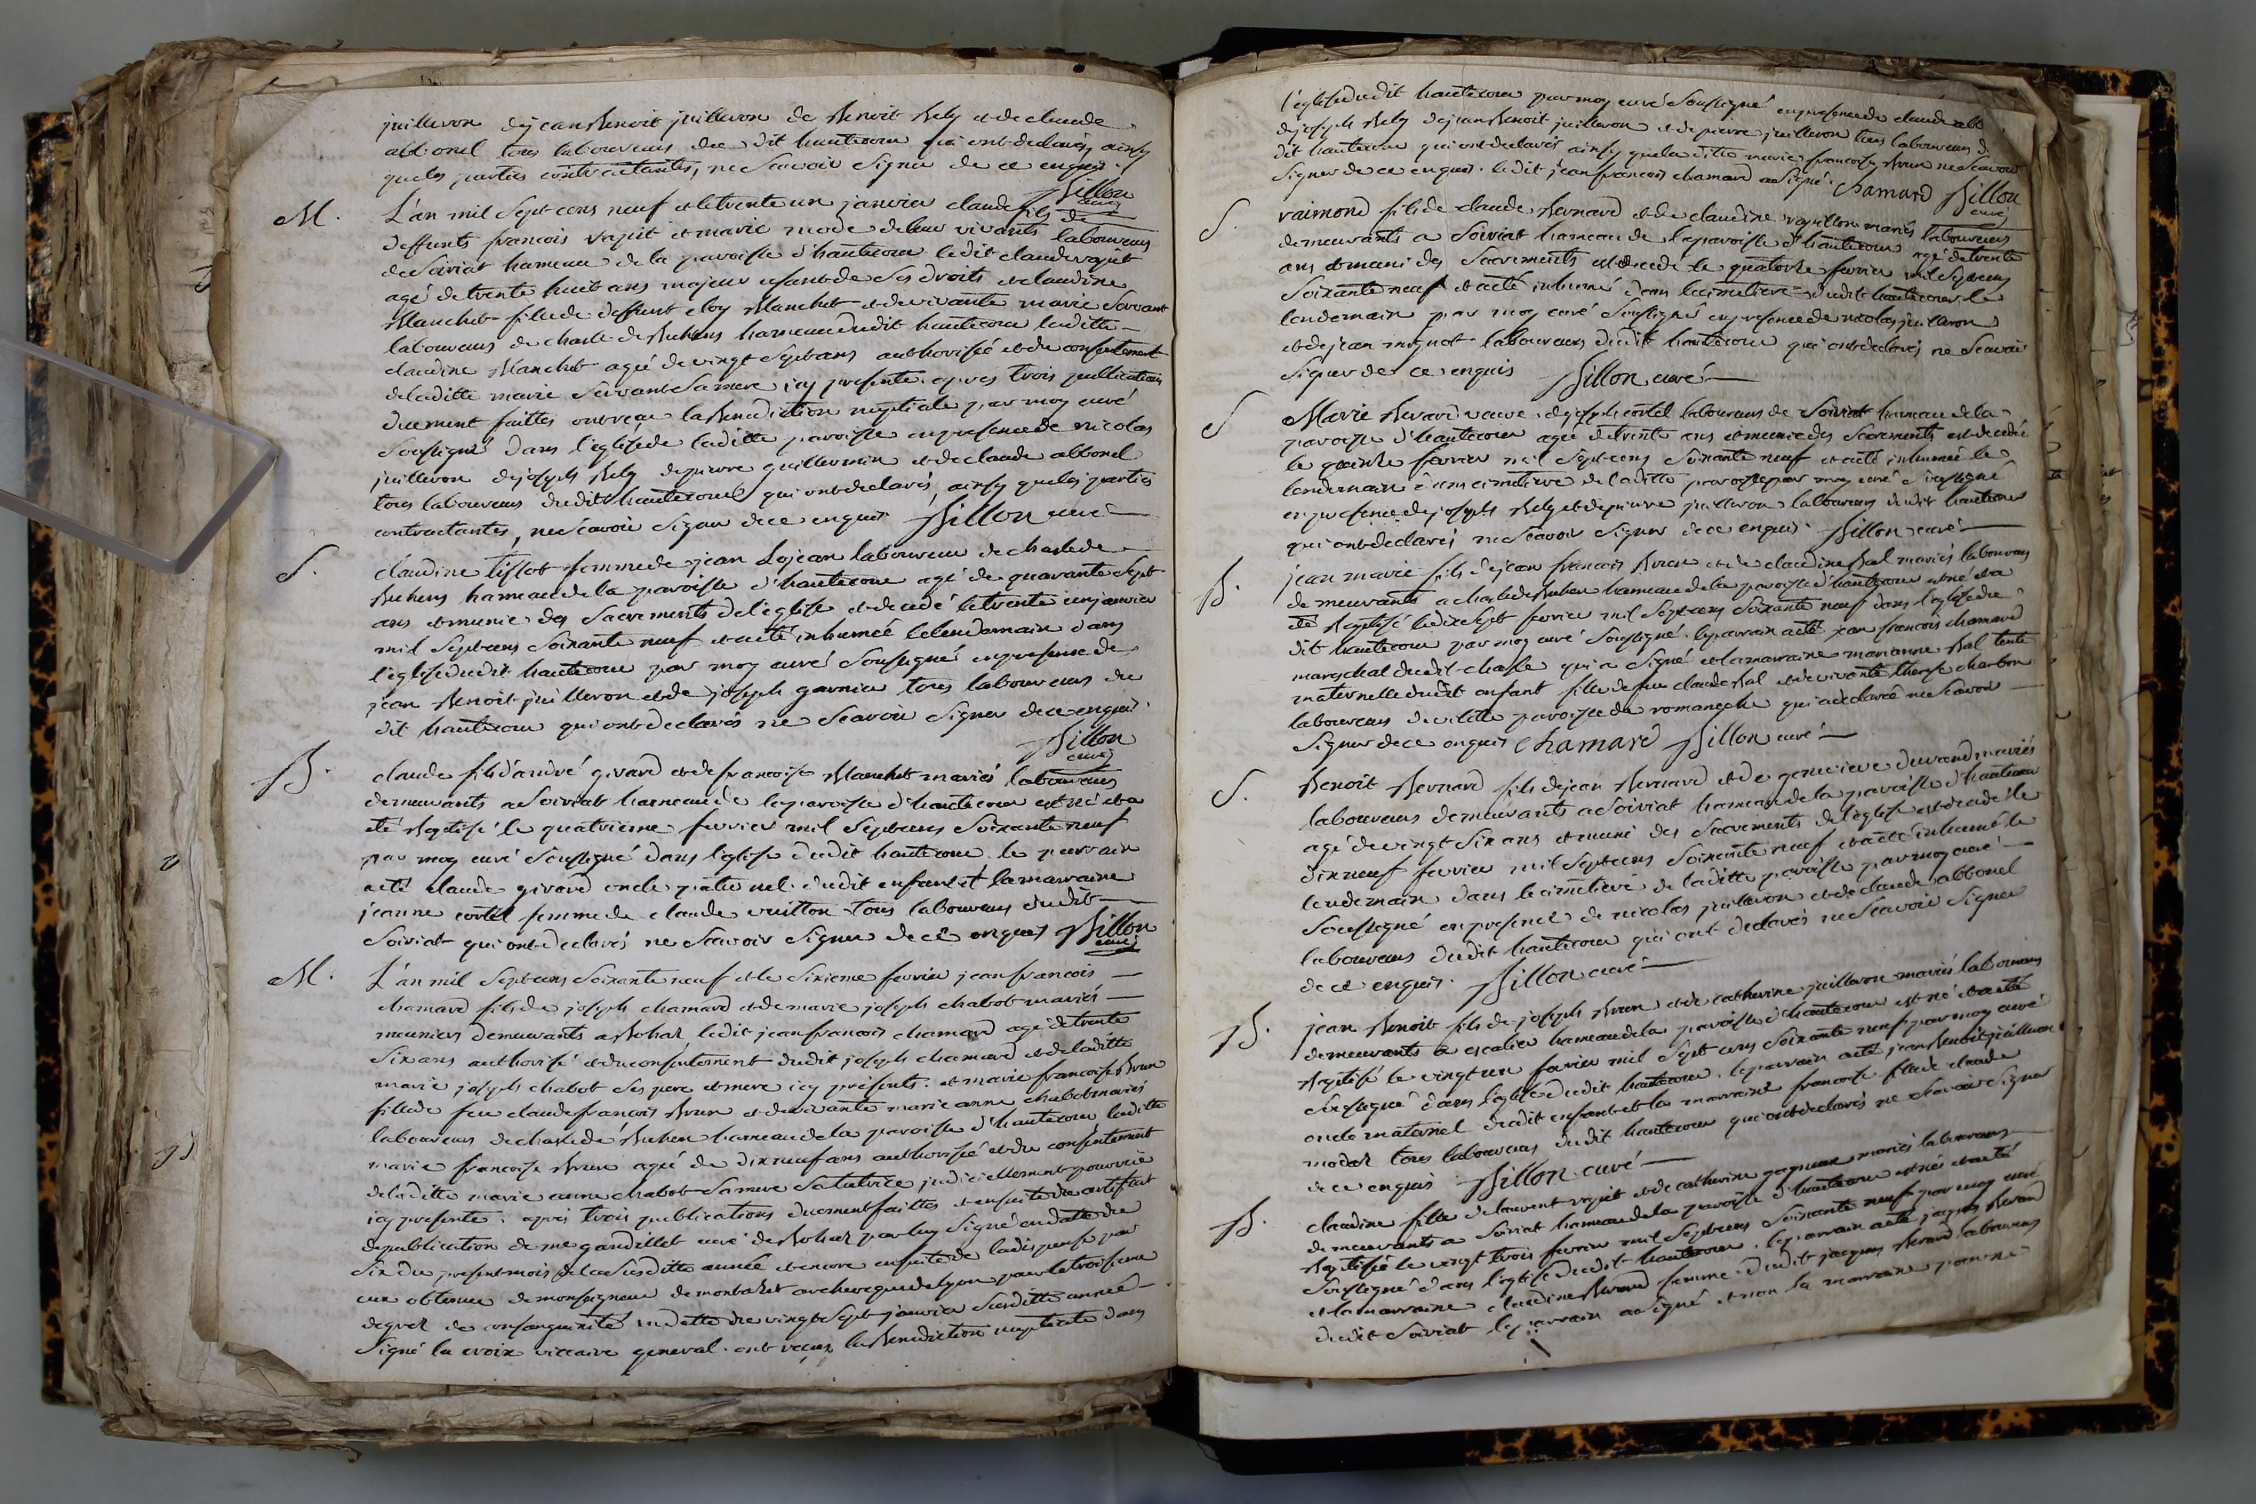 juilleron de jean Benoit juilleron de Benoit Rely et de claude
abbonel tous laboureurs du dit hautecour qui ont declarés, ainsy
que les parties contractantes, ne Scavoir Signer de ce enquis.
Billon
curé
M. L'an mil Sept cens neuf et le trente un janvier claude fils de
deffunts francois vapit et marie mode de leur vivants laboureurs
de Soiriat hameau de la paroisse d'hautecour ledit claude vapit
agé de trente huit ans majeur usant de Ses droits et claudine
Manchet fille de deffunt eloy Manchet et de vivante marie Servant
laboureurs de charle de Buhens hameau dudit hautecour laditte
claudine Manchet agé de vingt Sept ans authorisée et du consentement
de laditte marie Servant Sa mere icy presente. apres trois publications
duement faittes ont reçu la Benediction nuptiale par moy curé
Soussigné dans l'eglise de laditte paroisse en presence de nicolas
juilleron de joseph Rely de pierre guillermin et de claude abbonel
tous laboureurs dudit hautecour qui ont declarés, ainsy que les parties
contractantes, ne Scavoir Signer de ce enquis Billon curé
S. claudine tissot femme de jean Lojean laboureur de charle de
Buhens hameau de la paroisse d'hautecour agé de quarante Sept
ans et munie des Sacrements de l'eglise est decedé le trente un janvier
mil Sept cens Soixante neuf et a eté inhumeé le lendemain dans
l'eglise dudit hautecour par moy curé Soussigné en presence de
jean Benoit juilleron et de joseph garnier tous laboureurs du
dit hautecour qui ont declarés ne Scavoir Signer de ce enquis.
Billon
curé
B. claude fils d'andré girard et de francoise Manchet mariés laboureurs
demeurants a Soiriat hameau de la paroisse d'hautecour est né et a
eté Baptisé le quatrieme fevrier mil Sept cens Soixante neuf
par moy curé Soussigné dans l'eglise dudit hautecour le parrain
a eté claude girard oncle paternel dudit enfant et la marraine
jeanne cortel femme de claude vuitton tous laboureurs dudit
Soiriat qui ont declarés ne Scavoir Signer de ce enquis Billon
curé
M. L'an mil Sept cens Soixante neuf et le Sixieme fevrier jean francois
chamard fils de joseph chamard et de marie joseph chabot mariés
meuniers demeurants a Bohaz ledit jean francois chamard agé de trente
Six ans authorisé et du consentement dudit joseph chamard et de laditte
marie joseph chabot Ses pere et mere icy presents. et marie francoise Brun
fille de feu claude francois Brun et de vivante marie anne chabot mariés
laboureurs de charle de Buhen hameau de la paroisse d'hautecour laditte
marie francoise Brun agée de dixneuf ans authorisée et du consentement
de laditte marie anne chabot Sa mere Sa tutrice judiciellement pourvue
icy presente. apres trois publications duement faittes et ensuite du certificat
de publication de me gaudillet curé de Bohaz par luy Signé en datte du
Six du present mois de la Susditte année et encore ensuite de la dispense par
eux obtenue de monseigneur de montazet archeveque de Lyon pour le troisieme
degrez de consanguinité en datte du vingt Sept janvier Susditte année
Signé la croix viccaire general. ont reçus la Benediction nuptiale dans
l'eglise dudit hautecour par moy curé Soussigné en presence de claude abb
de joseph Rely de jean Benoit juilleron et de pierre juilleron tous laboureurs d
dit hautecour qui ont declarés ainsy que la ditte marie francoise Brun ne Scavoir
Signer de ce enquis. ledit jean francois chamard a Signé. Chamard Billon
curé
S. raimond fils de claude Bernard et de claudine vapillon mariés laboureurs
demeurants a Soiriat hameau de la paroisse d'hautecour agé de trente
ans et muni des Sacrements est decedé le quatorze fevrier mil Sept cens
Soixante neuf et a eté inhumé dans le cimetiere dudit hautecour le
lendemain par moy curé Soussigné en presence de nicolas juilleron
et de jean mignot laboureurs dudit hautecour qui ont declarés ne Scavoir
Signer de ce enquis Billon curé
S Marie Berard veuve de joseph cortel laboureurs de Soiriat hameau de la
paroisse d'hautecour agée de trente ans et munie des Sacrements est decedée
le quinze fevrier mil Sept cens Soixante neuf et a eté inhumée le
lendemain dans cimetiere de laditte paroisse par moy curé Soussigné
en presence de joseph Rely et de pierre juilleron laboureurs dudit hautecour
qui ont declarés ne Scavoir Signer de ce enquis. Billon curé
B. jean marie fils de jean francois Brun et de claudine Bal mariés laboureurs
demeurants a charle de Buhen hameau de la paroisse d'hautecour est né et a
eté Baptisé le dix Sept fevrier mil Sept cens Soixante neuf dans l'eglise du
dit hautecour par moy curé Soussigné. le parrain a eté jean francois chamard
mareschal dudit charle qui a Signé et la marraine marianne Bal tente
maternelle dudit enfant fille de feu claude Bal et de vivante therese charbon
laboureurs de villette paroisse de romaneche qui a declaré ne Scavoir
Signer de ce enquis Chamard Billon curé
S. Benoit Bernard fils de jean Bernard et de genevieve durand mariés
laboureurs demeurants a Soiriat hameau de la paroisse d'hautecour
agé de vingt Six ans et muni des Sacrements de l'eglise est decedé le
dixneuf fevrier mil Sept cens Soixante neuf et a eté inhumé le
lendemain dans le cimetiere de laditte paroisse par moy curé
Soussigné en presence de nicolas juilleron et de claude abbonel
laboureurs dudit hautecour qui ont declarés ne Scavoir Signer
de ce enquis. Billon curé
B. jean Benoit fils de joseph Brun et de catherine juilleron mariés laboureurs
demeurants a escalier hameau de la paroisse d'hautecour est né et a eté
Baptisé le vingt un fevrier mil Sept cens Soixante neuf par moy curé
Soussigné dans l'eglise dudit hautecour. le parrain a eté jean Benoit juilleron
oncle maternel dudit enfant et la marraine francoise fille de claude
modas tous laboureurs dudit hautecour qui ont declarés ne Scavoir Signer
de ce enquis Billon curé
B. claudine fille de laurent vapit et de catherine gagneur mariés laboureurs
demeurants a Soiriat hameau de la paroisse d'hautecour est née et a eté
Baptisée le vingt trois fevrier mil Sept cens Soixante neuf par moy curé
Soussigné dans l'eglise dudit hautecour. le parrain a eté jaques Berard
et la marraine claudine Berard femme dudit jacques Berard laboureurs
dudit Soiriat le parrain a Signé et non la marraine pour ne